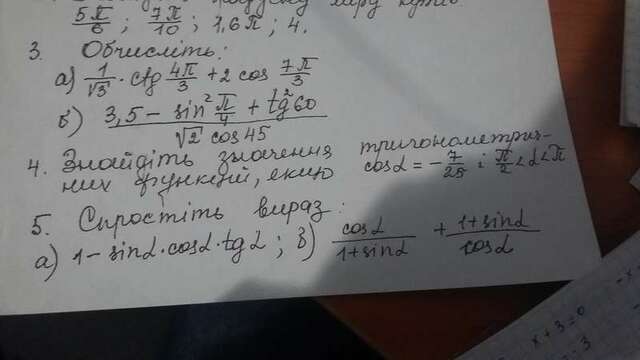 градусну міру кутів
5π/6 ; 7π/10 ; 1,6π ; 4.
3. Обчисліть:
а) 1/√3 · ctg 4π/3 + 2 cos 7π/3
б) (3,5 − sin² π/4 + tg² 60) / (√2 cos 45)
4. Знайдіть значення тригонометрич-
них функцій, якщо cosα = −7/25 і π/2 < α < π
5. Спростіть вираз:
а) 1 − sinα · cosα · tgα ; в) cosα/(1+sinα) + (1+sinα)/cosα
x + 3 = 0